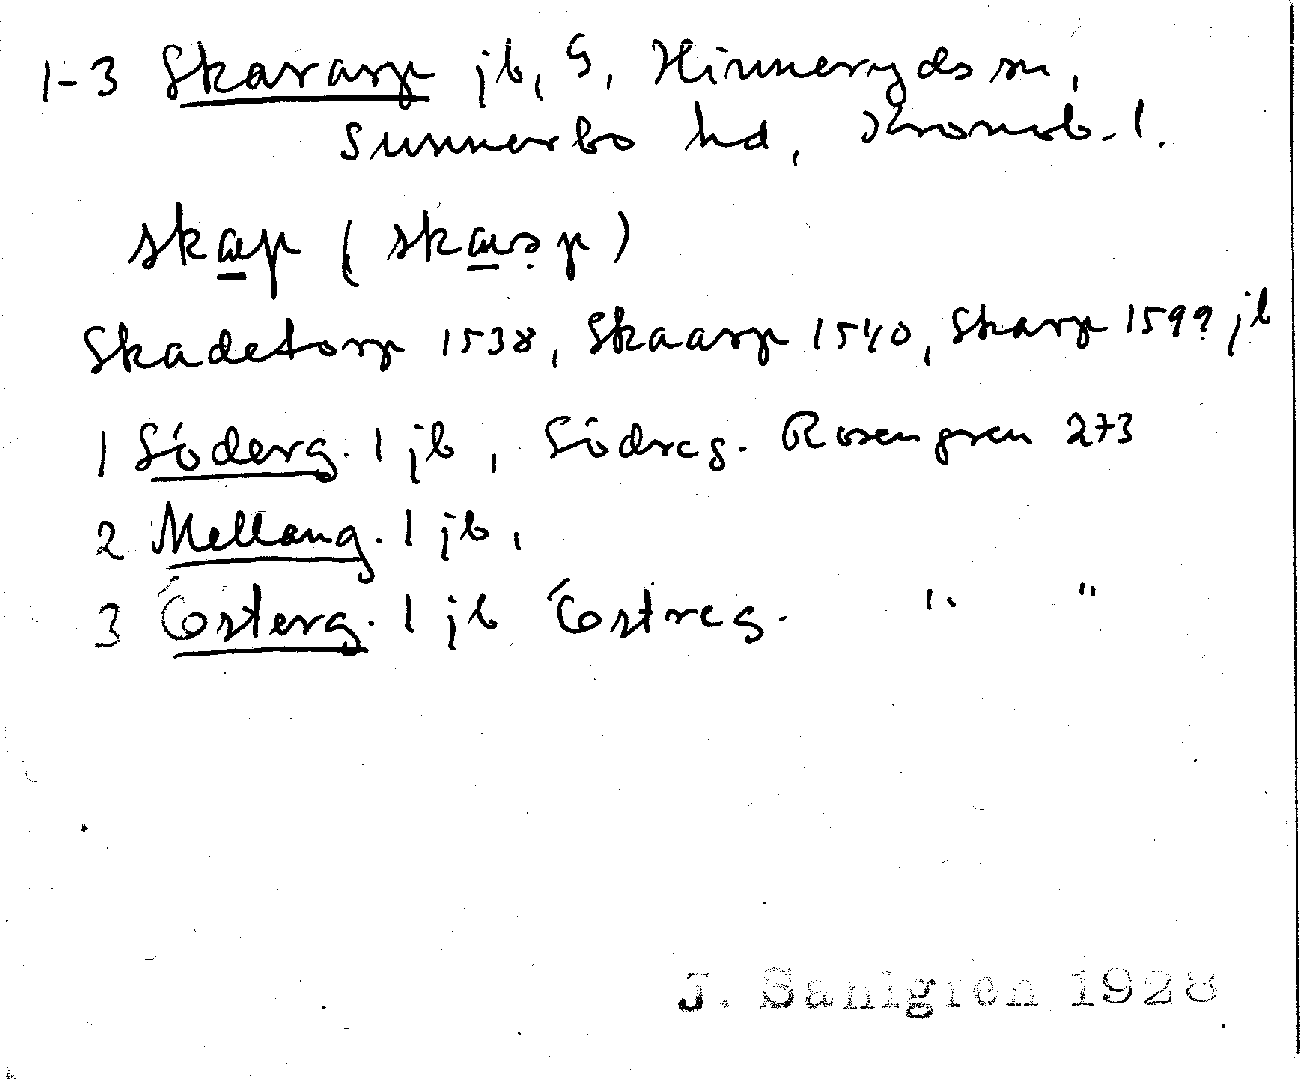 1-3 Skararp jb, G, Hinneryds sn,
Sunnerbo hd, Kronob. l.
skap (skarp)
Skadetorp 1538, Skaarp 1540, Skarp 1599 jb
1 Söderg. 1 jb, Södreg. Rosengren 273
2 Mellang. 1 jb,
3 Österg. 1 jb Östreg. " "
J. Sahlgren 1928